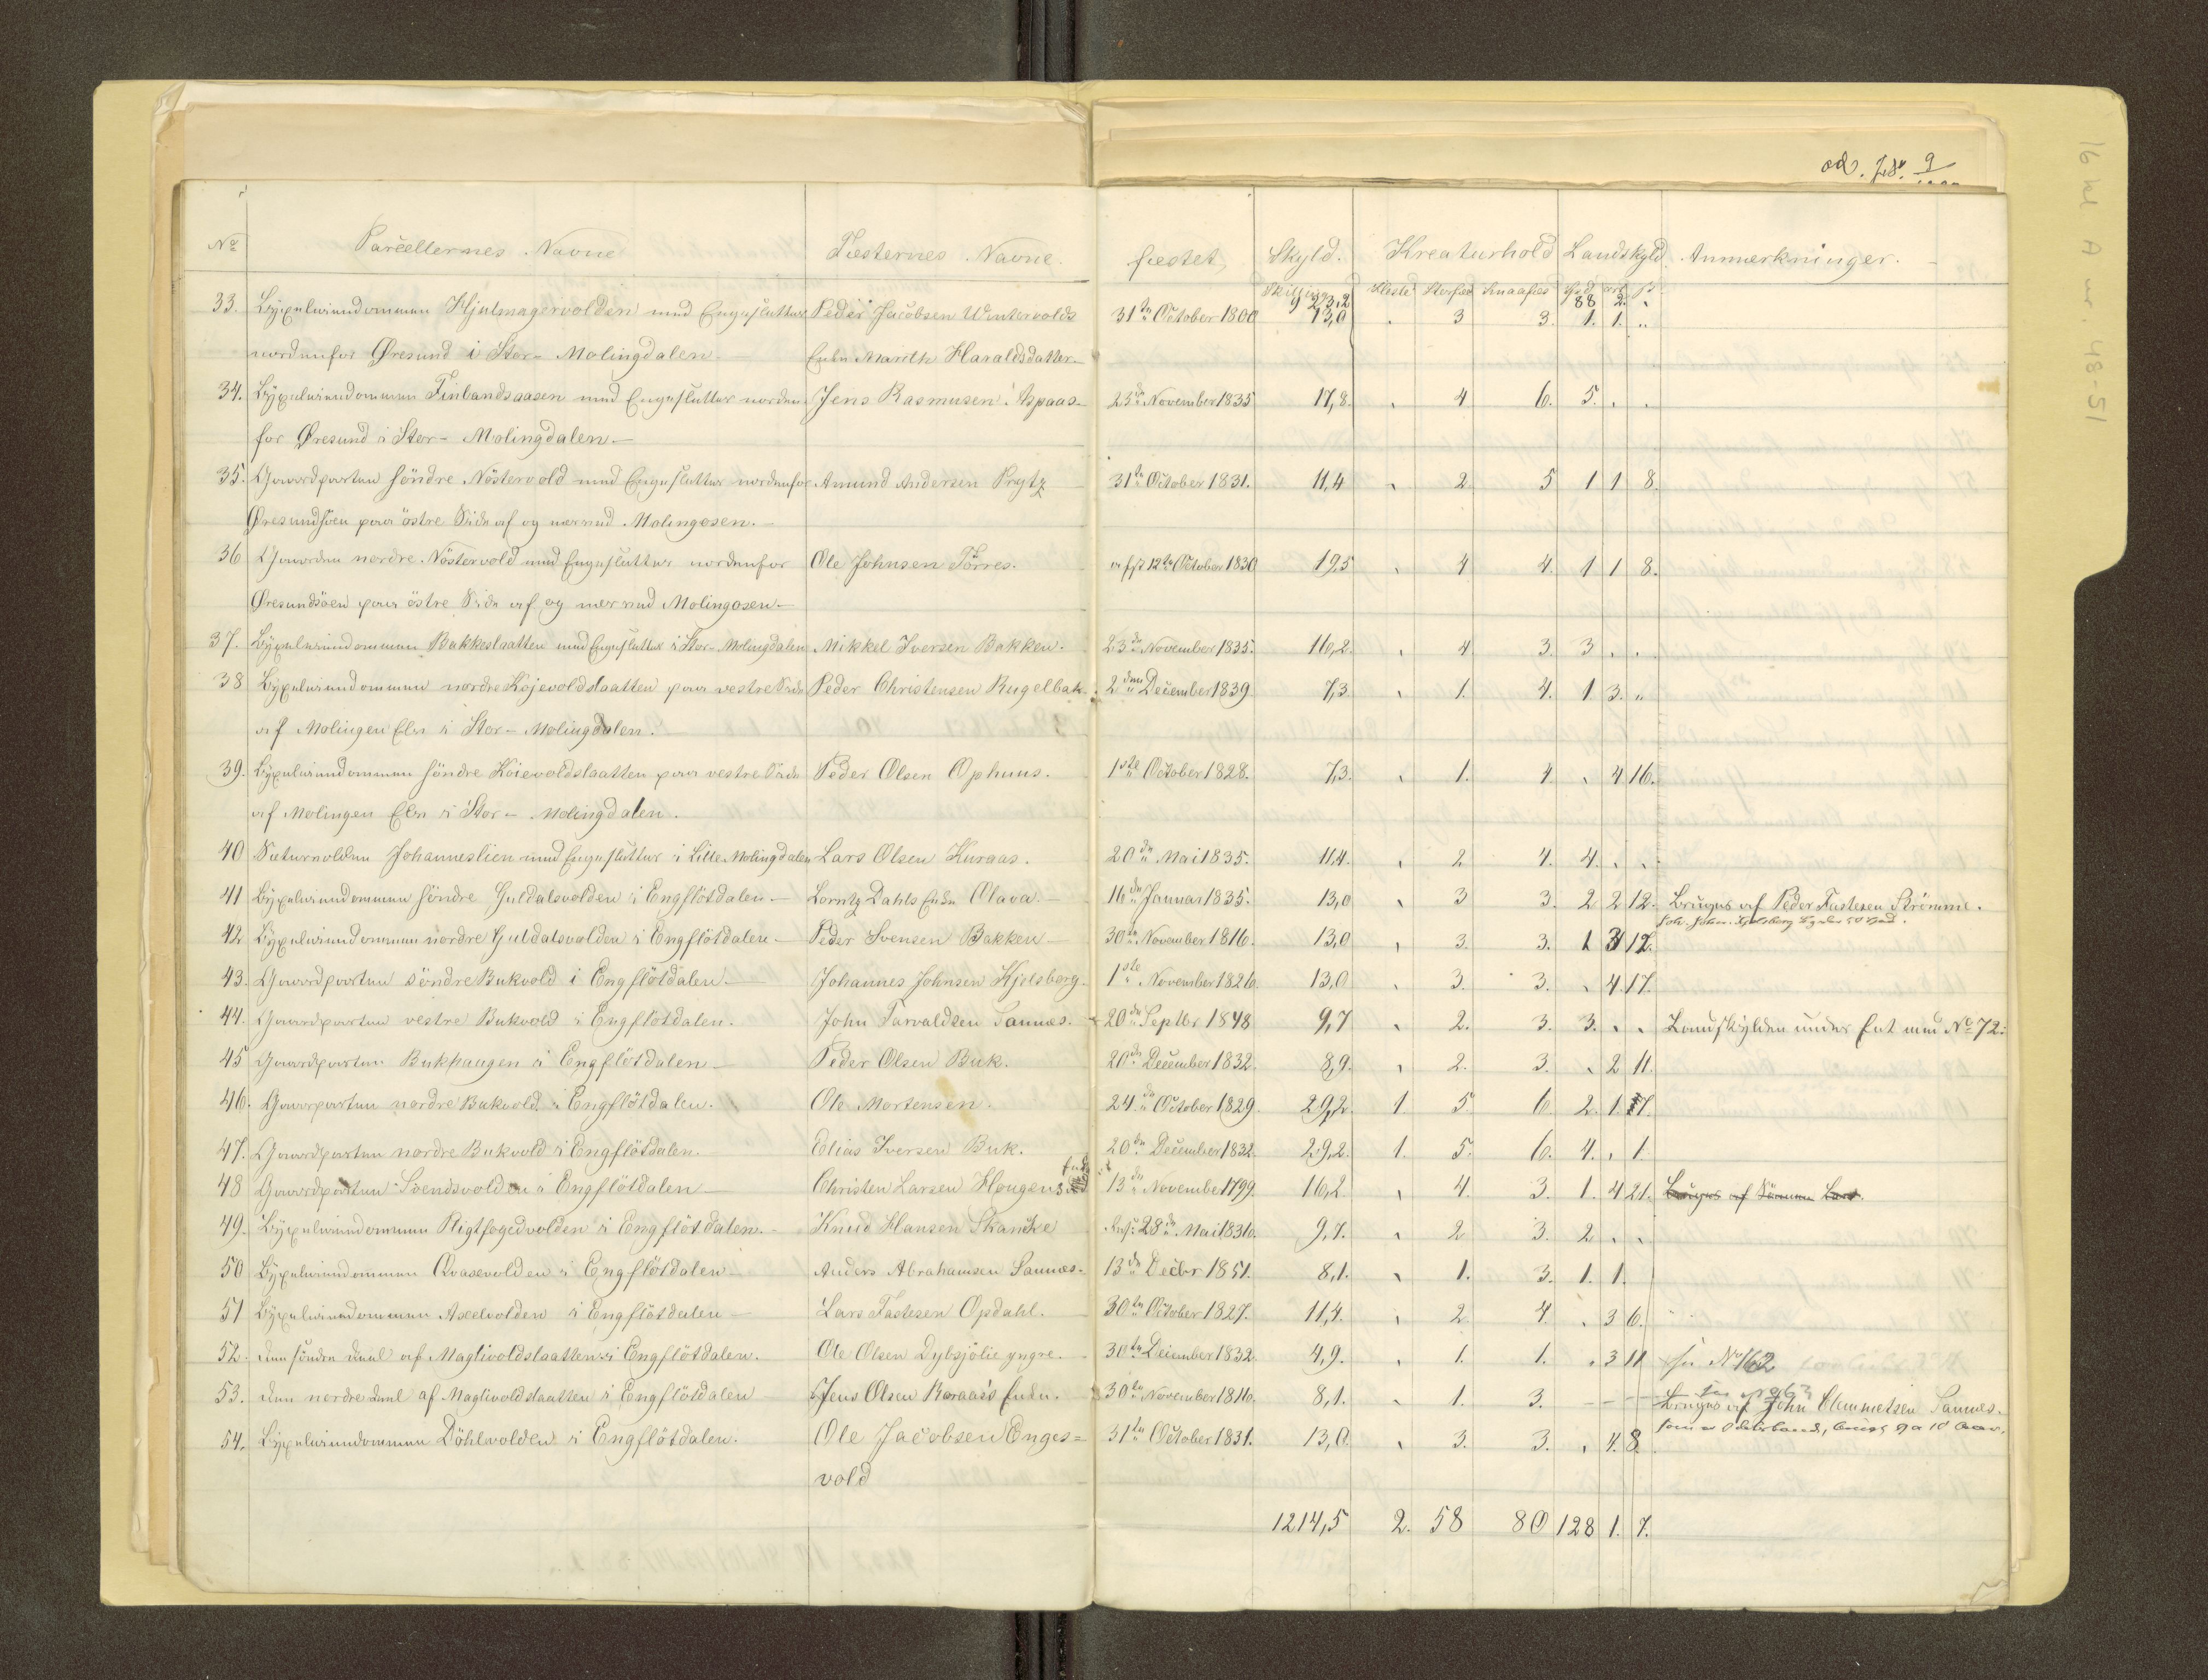 ad. J. 9
16 kl A nr. 48-51
No Parcellernes Navne Fæsternes Navne. fæstet Skyld. Kreaturhold Landskyld Anmærkninger.
Skilling Heste Storfæ Smaafæ Spd ort ß
923,2 88 2 "
33. Bÿxeleiendommen Hjulmagervolden med Engeslætter Peder Jacobsen Wintervolds 31te October 1800 13,0 " 3 3. 1. 1. "
nordenfor Øresund i Stor- Molingdalen Enke Marith Haraldsdatter.
34. Bÿxeleiendommen Finlandsaasen med Engeslætter norden- Jens Rasmusen Aspaas- 23de November 1835 17,8. " 4 6. 5. " "
for Øresund i Stor- Molingdalen.
35. Gaardparten söndre Nöstervold med Engeslætter nordenfor Amund Andersen Prytz 31te October 1831. 11,4 " 2 5 1 1 8.
Øresundsöen paa östre Side af og næved Molingosen.
36 Gaarden nordre Nöstervold med Engeslætter nordenfor Ole Johnsen Törres. 12te October 1830 19,5 " 4 4. 1 1 8.
Øresundsöen paa östre Side af og næved Molingosen.
37. Bÿxeleiendommen Bakkeslaatten med Engeslætter i Stor- Molingdalen Mikkel Iversen Bakken. 23de November 1835. 16,2. " 4 3. 3 " "
38 Bÿxeleiendommen nordre Kojevoldslaatten paa vestre Side Peder Christensen Rugelbak. 2den December 1839 7,3 " 1. 4. 1 3. "
af Molingen Elv i Stor- Molingdalen.
39. Bÿxeleiendommen söndre Koievoldslaatten paa vestre Side Peder Olsen Ophuus. 1ste October 1828. 7,3. " 1. 4. " 4 16.
af Molingen Elv i Stor- Molingdalen.
40 Sætervolden Johanneslien med Engeslætter i Lille Molingdalen Lars Olsen Kuraas. 20de Mai 1835. 11,4. " 2 4. 4. " "
41 Bÿxeleiendommen söndre Guldalsvolden i Engflötdalen Lorntz Dahls Enke Olava. 16de Januar 1835. 13,0 " 3 3. 2 2 12. Bruges af Peder Fastesen Strömme.
42 Bÿxeleiendommen nordre Guldalsvolden i Engflötdalen Peder Svensen Bakken 30te November 1816. 13,0 " 3. 3. 1 3 12.
43. Gaardparten söndre Bukvold i Engflötdalen Johannes Johnsen Hjelsberg. 1ste November 1826. 13,0 " 3. 3. " 4 17.
44. Gaardparten vestre Bukvold i Engflötdalen. John Tarvaldsen Sannæs. 20de Septbr 1848 9,7 " 2. 3. 3. " " Landskylden under Eet med No 72.
45 Gaardparten Bukhaugen i Engflötdalen Peder Olsen Buk. 20de December 1832. 8,9. " 2. 3. " 2 11.
46. Gaarparten nordre Bukvold i Engflötdalen. Ole Mortensen. 24de October 1829. 29,2. 1. 5. 6 2. 1. 17.
47. Gaardparten nordre Bukvold i Engflötdalen. Elias Iversen Buk. 20de December 1832. 29,2. 1. 5. 6. 4. " 1.
48 Gaardparten Svendsvolden i Engflötdalen Christen Larsen Hougens Enke 13de November 1799. 16,2. " 4. 3. 1. 4 21. Bruges af Sönnen Lars.
49. Bÿxeleiendommen Pligtfogedvolden i Engflötdalen. Knud Hansen Skancke 28de Mai 1836. 9,7. " 2 3. 2 " "
50 Bÿxeleiendommen Qvasevolden i Engflötdalen Anders Abrahamsen Sannæs. 13de Decbr 1851. 8,1. " 1. 3. 1. 1.
51 Bÿxeleiendommen Axelvolden i Engflötdalen Lars Fastesen Opdahl. 30te October 1827. 11,4. " 2 4. " 3 6.
52. den söndre Deel af Maglivoldslaatten i Engflötdalen. Ole Olsen Dybsjölie yngre. 30te December 1832. 4,9. " 1. 1. " 3 11 se No 162
53. den nordre Deel af Maglivoldslaatten i Engflötdalen Jens Olsen Koraas's Enke. 30te November 1816. 8,1. " 1. 3. - - - Bruges af John Clemmetsen Sannes.
54. Bÿxeleiendommen Döhlvolden i Engflötdalen. Ole Jacobsen Enges= 31te October 1831. 13,0. " 3. 3. " 4. 8.
vold
1214,5 2. 58 80 128 1. 7.